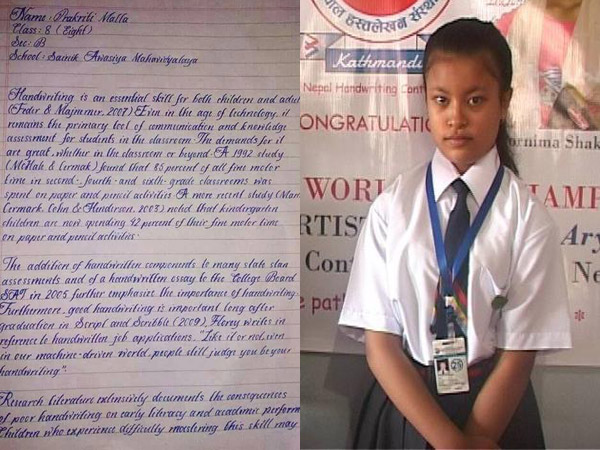 Name : Prakriti Malla
Class : 8 (Eight)
Sec : B
School : Sainik Awasiya Mahavidyalaya
Handwriting is an essential skill for both children and adul
(Feder & Majnemer, 2007) Even in the age of technology, it
remains the primary tool of communication and knowledge
assessment for students in the classroom. The demands for it
are great, whether in the classroom or beyond. A 1992 study
(McHale & Cermak) found that 85 percent of all fine motor
time in second- fourth- and sixth-grade classrooms was
spent on paper and pencil activities. A more recent study (Mar
Cermark, Cohn & Henderson, 2003) noted that kindergarten
children are now spending 42 percent of their fine motor time
on paper and pencil activities.
The addition of handwritten components to many state stan
assessments and of a handwritten essay to the College Board
SAT in 2005 further emphasize the importance of handwriting.
Furthermore, good handwriting is important long after
graduation in Script and Scribble (2009), Florey writes in
reference to handwritten job applications. "Like it or not, even
in our machine-driven world, people still judge you by your
handwriting".
Research literature extensively documents the consequences
of poor handwriting on early literacy and academic perform
Children who experience difficulty mastering this skill may
नेपाल हस्तलेखन संस्था
Kathmandu
Nepal Handwriting Cont
ONGRATULATIO
ornima Shak
WOR
HAMP
RTIS
Ary
Con
Ne
e pat